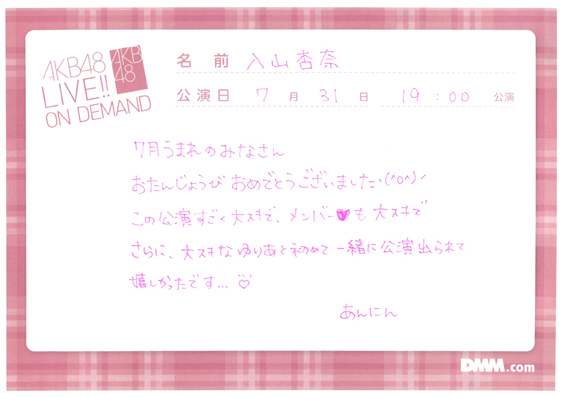 AKB48
LIVE!!
ON DEMAND
AKB
48
名前 入山杏奈
公演日 7月31日 19:00 公演
7月うまれのみなさん
おたんじょうび おめでとうございましたヽ(^o^)ノ
この公演すごく大スキで、メンバー♥も大スキで
さらに、大スキなゆりあと初めて一緒に公演出られて
嬉しかったです...♡
あんにん
DMM.com